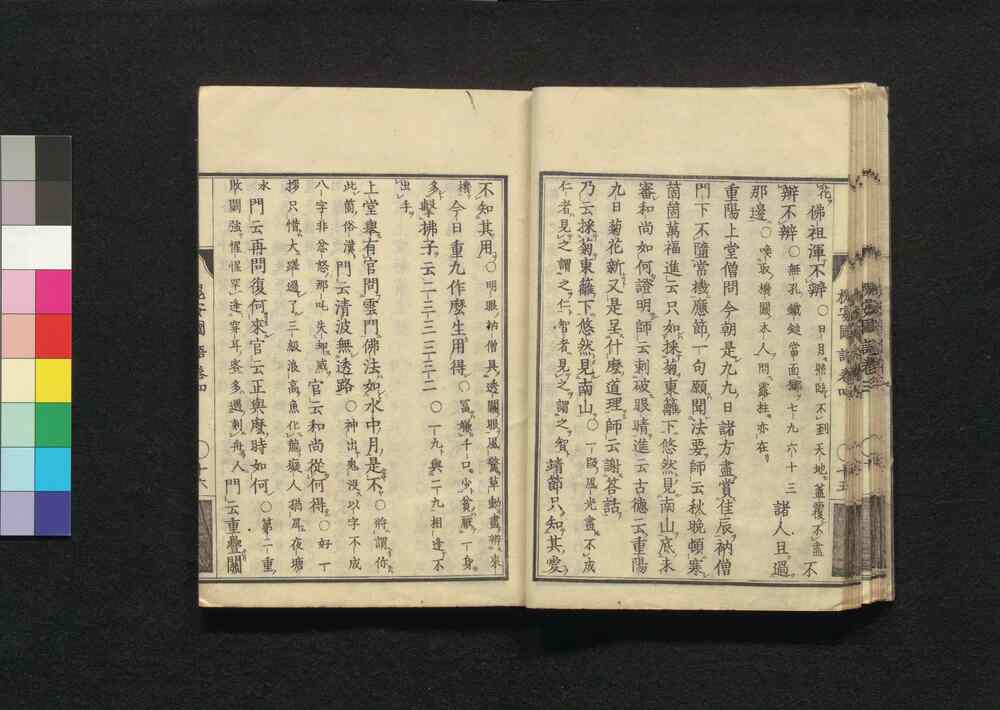 花佛祖渾不辨〇日月照臨不到天地蓋覆不盡不
辨不辨〇無孔鐵鎚當面擲七九六十三諸人且過
那邊〇喚取機關木人問露柱亦在
重陽上堂僧問今朝是九九日諸方盡賞佳辰衲僧
門下不隨當機應節一句願聞法要師云秋晚頓寒
箇箇萬福進云只如採菊東籬下悠然見南山底未
審和尚如何證明師云刺破眼睛進云古德云重陽
九日菊花新又是呈什麼道理師云謝答話
乃云採菊東籬下悠然見南山〇一段風光畫不成
仁者見之謂之仁智者見之謂之智靖節只知其愛
槐安國語卷四 〇十五
不知其用〇明眼衲僧具透關眼風警草動盡辨來
機今日重九作麼生用得〇富嫌千口少貧厭一身
多擊拂子云二三三三三二〇一九與二九相逢不
出手
上堂舉有官問雲門佛法如水中月是不〇將謂你
此箇俗漢門云清波無透路〇神出鬼沒以字不成
八字非忿怒那吒失却威官云和尚從何得〇好一
拶只惜大蹉過了三級浪高魚化龍癡人猶戽夜塘
水門云再問復何來官云正與麼時如何〇第二重
敗闕強惺惺罕逢穿耳客多遇刻舟人門云重疊關
槐安國語卷四 〇十六